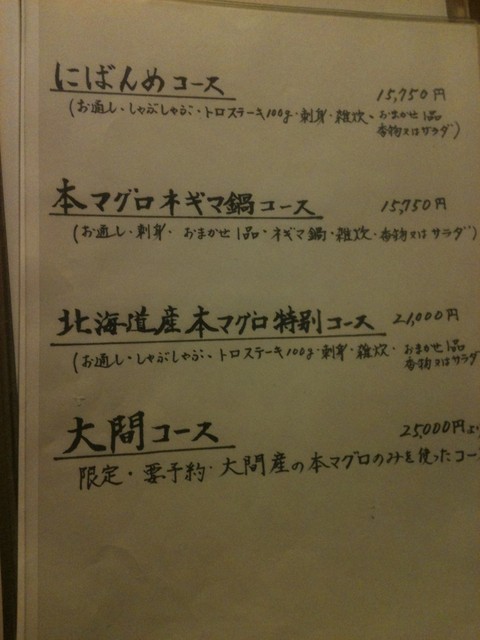 にばんめコース 15,750円
(お通し・しゃぶしゃぶ・トロステーキ100g・刺身・雑炊、おまかせ1品
香物又はサラダ)
本マグロネギマ鍋コース 15,750円
(お通し・刺身・おまかせ1品・ネギマ鍋・雑炊・香物又はサラダ)
北海道産本マグロ特別コース 21,000円
(お通し・しゃぶしゃぶ、トロステーキ100g・刺身・雑炊・おまかせ1品
香物又はサラダ
大間コース 25,000円より
限定・要予約・大間産の本マグロのみを使ったコー